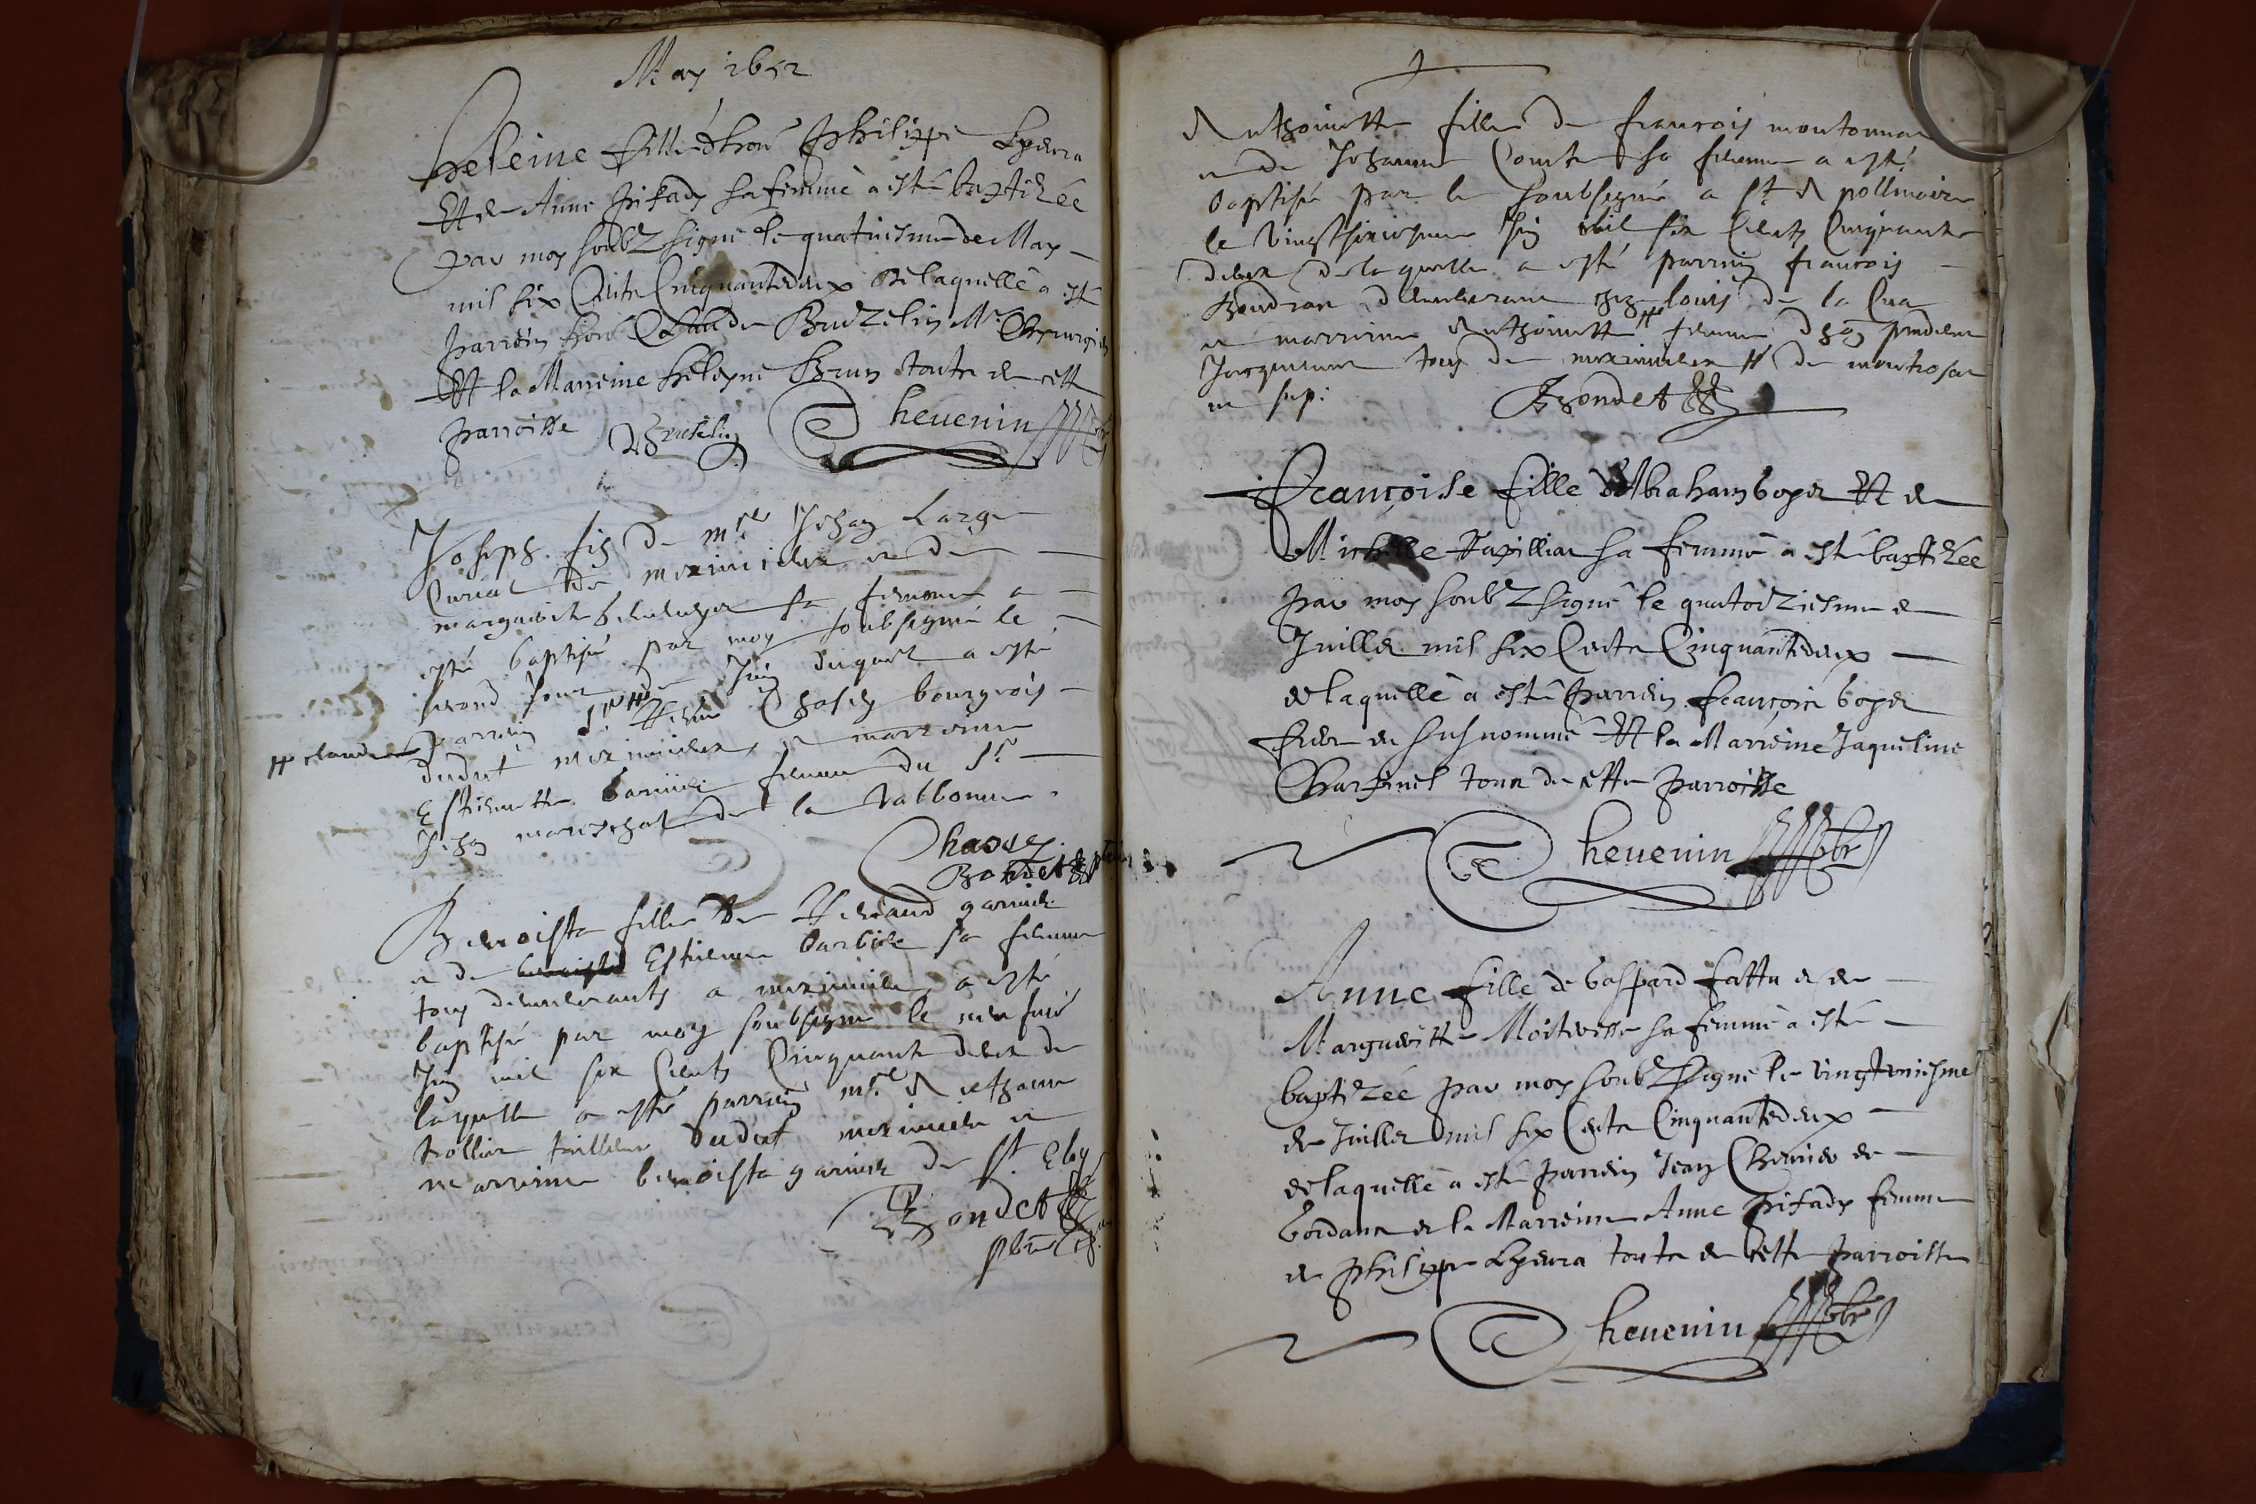 May 1652
heleine fille d'hon. Philippe
Et de Anne Pikady sa femme a esté baptizée
par moy soubzsigné le quatriesme de May
mil six Cents Cinquantedeux De laquelle a esté
parrein hon. Claude Buzelin Me Chyrurgien
Et la Marreine heleyne Brun touts de cette
parroisse Buselin Cheuenin
Joseph fis de me Jehan Large
Curial de meximieux et de
marguerite sa femme a
esté baptisé par moy soubsigné le
second jour de Juin duquel a esté
parrein Sr ## Chasey bourgeois
## claude
dudit meximieux, et marreine
Estiennette barnier femme du Sr
Jehan mareschal de la Valbonne.
Chasey
Bondet
Benoiste fille de garnier
et de Estienne barbier sa femme
tous demeurants a meximieux a esté
baptisé par moy soubsigné le neufuie
Juin mil six Cents Cinquante deux de
laquelle a esté parrein me Anthoine
trollier tailleur dudit meximieux et
marreine benoiste garnier de St Eloy
Bondet
pbre
Anthoinette fille de francois montonnat
et de Jehanne Comte sa femme a esté
baptisé par le soubsigné a St Apollinaire
le vingtsixiesme Juin mil six Cents Cinquante
deux de laquelle a esté parrein francois
demeurant chez louis de la Cua
et marreine Anthoinette ## femme
Jacquemet tous de meximieux ## de
et sup:
Bondet
Françoise fille d'Abraham boyer Et de
Michelle Papillian sa femme a esté baptizée
par moy soubzsigné le quatorziesme de
Juillet mil six Cents Cinquantedeux
de laquelle a esté Parrein françois boyer
frere du susnommé Et la Marreine Jaqueline
Charpinel tous de cette parroisse
Cheuenin pbre
Anne fille de Gaspard fattu et de
Margueritte sa femme a esté
baptizée par moy soubzsigné le vingtuniesme
de Juillet mil six Cents Cinquantedeux
de laquelle a esté parrein Jean de
et la Marreine Anne Pikady femme
de Philippe touts de cette parroisse
Cheuenin pbre